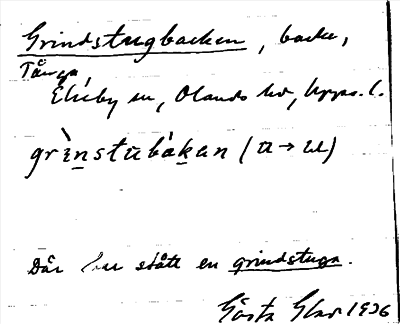 Grindstugbacken, backe,
Tånga,
Ekeby sn, Olands hd, Upps. l.
grìnstu̅bàkan (u̅ → ɯ)
Där har stått en grindstuga.
Gösta 1936